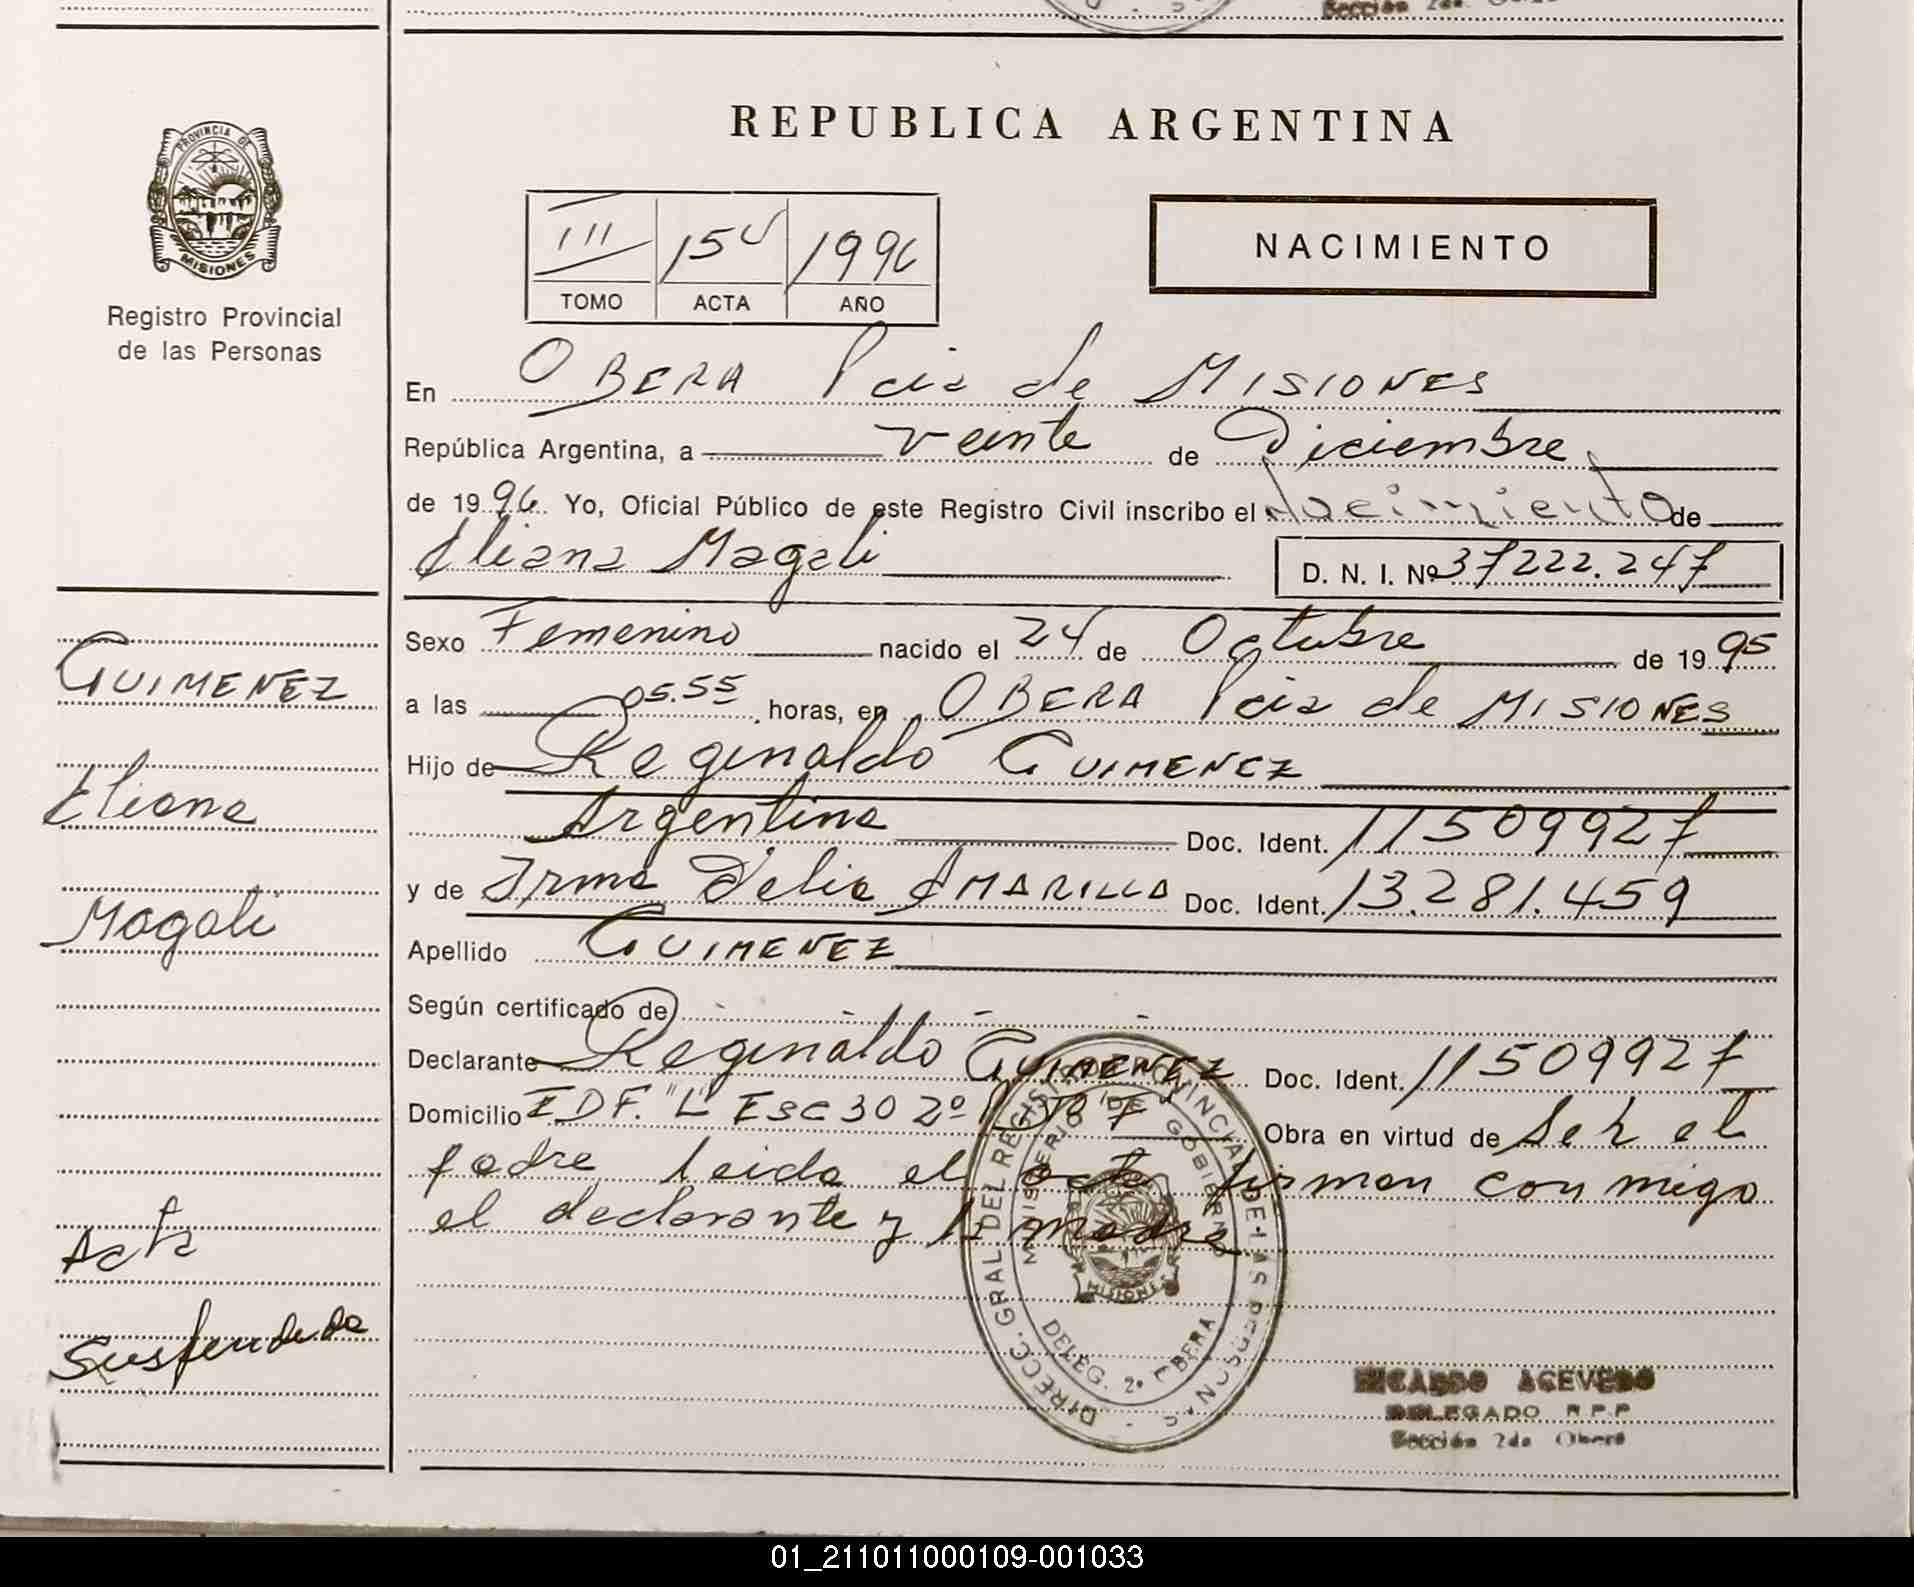 Sección 2da.
REPUBLICA ARGENTINA
PROVINCIA DE
MISIONES
Registro Provincial
de las Personas
III 154 1996
TOMO ACTA AÑO
NACIMIENTO
En OBERA Pcia de MISIONES
República Argentina, a veinte de Diciembre
de 1996 Yo, Oficial Público de este Registro Civil inscribo el Nacimiento de
Eliana Magali D. N. I. Nº 37222.247
Sexo Femenino nacido el 24 de Octubre de 1995
a las 05.55 horas, en OBERA Pcia de MISIONES
Hijo de Reginaldo GUIMENEZ
Argentina Doc. Ident. 11509927
y de Irma Delia AMARILLA Doc. Ident. 13.281.459
Apellido GUIMENEZ
Según certificado de
Declarante Reginaldo GUIMENEZ Doc. Ident. 11509927
Domicilio EDF. "L" ESC 30 2º Obra en virtud de ser el
padre leida el acta firman con migo
el declarante y la madre
GUIMENEZ
Eliana
Magali
Acta
Suspendida
DIRECC. GRAL DEL REGISTRO PROVINCIAL DE LAS PERSONAS
MINISTERIO DE GOBIERNO
MISIONES
DELEG. 2º OBERA
RICARDO ACEVEDO
DELEGADO R.P.P
Sección 2da Oberá
01_211011000109-001033